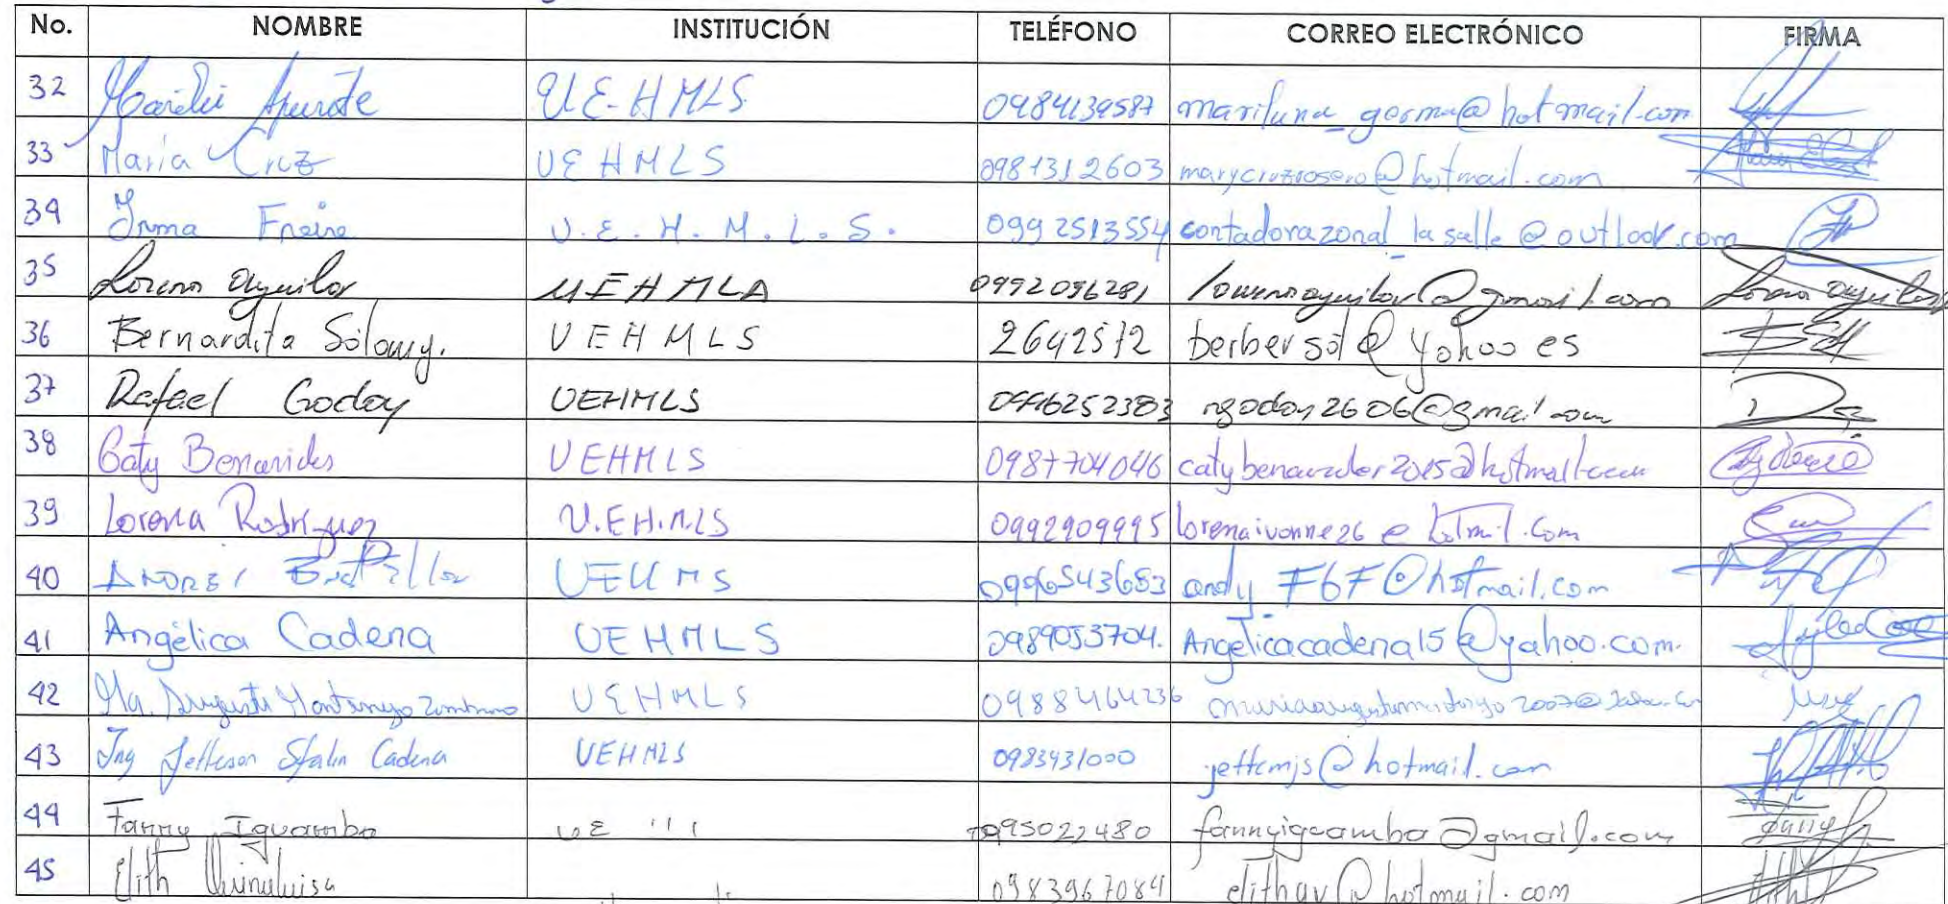 No. NOMBRE INSTITUCIÓN TELÉFONO CORREO ELECTRÓNICO FIRMA
32 UE-HMLS 0984139587 mariluna_germa@hotmail.com
33 María Cruz UEHMLS 0981312603 marycruzrosero@hotmail.com
34 Irma Freire U.E.H.M.L.S. 0992513554 contadorazonal_lasalle@outlook.com
35 Lorena Aguilar UEHMLA 0992096281 Lorena Aguilar
36 Bernardita UEHMLS 2642572 berbersol@yahoo es
37 Rafael Godoy UEHMLS rgodoy2606@gmail.com
38 Caty Benavides UEHMLS 0987704046
39 Lorena Rodríguez U.EH.M.LS 0992909995 lorenaivonne26 @ hotmil.com
40 0996543653 andy_F6F@hotmail.com
41 Angélica Cadena UEHMLS 0989053704. Angelicacadena15@yahoo.com.
42 Ma. Augusta Montenegro Zambrano UEHMLS 0988464236
43 Ing Jefferson Stalin Cadena UEHMLS 0983431000 jeffcmjs@hotmail.com
44 Fanny Iguamba UE ''' 0995022480 fannyiguamba@gmail.com
45 Elith Quinaluisa 0983967084 elithav@hotmail.com